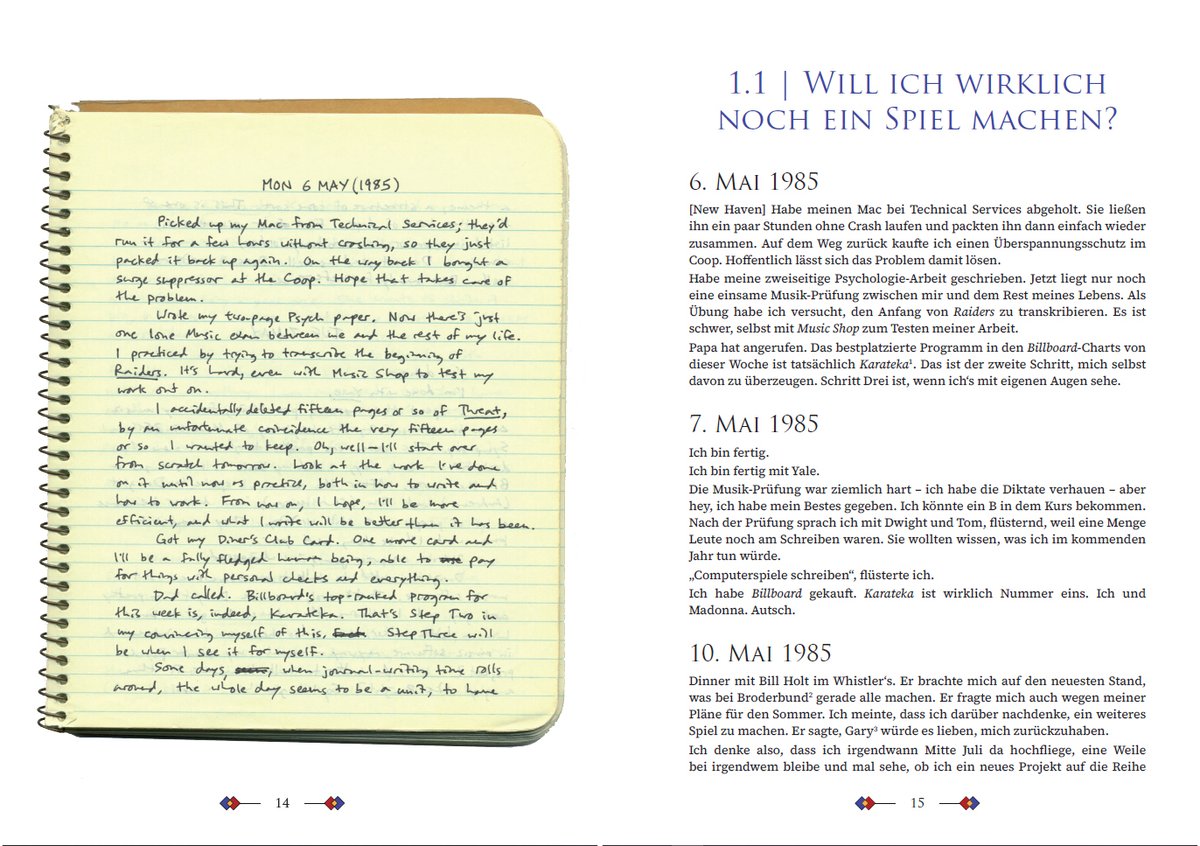 MON 6 MAY (1985)
Picked up my Mac from Technical Services; they'd
run it for a few hours without crashing, so they just
packed it back up again. On the way back I bought a
surge suppressor at the Coop. Hope that takes care of
the problem.
Wrote my two-page Psych paper. Now there's just
one lone Music exam between me and the rest of my life.
I practiced by trying to transcribe the beginning of
Raiders. It's hard, even with Music Shop to test my
work out on.
I accidentally deleted fifteen pages or so of Threat,
by an unfortunate coincidence the very fifteen pages
or so I wanted to keep. Oh, well – I'll start over
from scratch tomorrow. Look at the work I've done
on it until now as practice, both in how to write and
how to work. From now on, I hope, I'll be more
efficient, and what I write will be better than it has been.
Got my Diner's Club Card. One more card and
I'll be a fully fledged human being, able to use pay
for things with personal checks and everything.
Dad called. Billboard's top-ranked program for
this week is, indeed, Karateka. That's Step Two in
my convincing myself of this, Step Three will
be when I see it for myself.
Some days, when journal-writing time rolls
around, the whole day seems to be a unit, to have
14
1.1 | Will ich wirklich
noch ein Spiel machen?
6. Mai 1985
[New Haven] Habe meinen Mac bei Technical Services abgeholt. Sie ließen
ihn ein paar Stunden ohne Crash laufen und packten ihn dann einfach wieder
zusammen. Auf dem Weg zurück kaufte ich einen Überspannungsschutz im
Coop. Hoffentlich lässt sich das Problem damit lösen.
Habe meine zweiseitige Psychologie-Arbeit geschrieben. Jetzt liegt nur noch
eine einsame Musik-Prüfung zwischen mir und dem Rest meines Lebens. Als
Übung habe ich versucht, den Anfang von Raiders zu transkribieren. Es ist
schwer, selbst mit Music Shop zum Testen meiner Arbeit.
Papa hat angerufen. Das bestplatzierte Programm in den Billboard-Charts von
dieser Woche ist tatsächlich Karateka¹. Das ist der zweite Schritt, mich selbst
davon zu überzeugen. Schritt Drei ist, wenn ich's mit eigenen Augen sehe.
7. Mai 1985
Ich bin fertig.
Ich bin fertig mit Yale.
Die Musik-Prüfung war ziemlich hart – ich habe die Diktate verhauen – aber
hey, ich habe mein Bestes gegeben. Ich könnte ein B in dem Kurs bekommen.
Nach der Prüfung sprach ich mit Dwight und Tom, flüsternd, weil eine Menge
Leute noch am Schreiben waren. Sie wollten wissen, was ich im kommenden
Jahr tun würde.
„Computerspiele schreiben“, flüsterte ich.
Ich habe Billboard gekauft. Karateka ist wirklich Nummer eins. Ich und
Madonna. Autsch.
10. Mai 1985
Dinner mit Bill Holt im Whistler's. Er brachte mich auf den neuesten Stand,
was bei Broderbund² gerade alle machen. Er fragte mich auch wegen meiner
Pläne für den Sommer. Ich meinte, dass ich darüber nachdenke, ein weiteres
Spiel zu machen. Er sagte, Gary³ würde es lieben, mich zurückzuhaben.
Ich denke also, dass ich irgendwann Mitte Juli da hochfliege, eine Weile
bei irgendwem bleibe und mal sehe, ob ich ein neues Projekt auf die Reihe
15